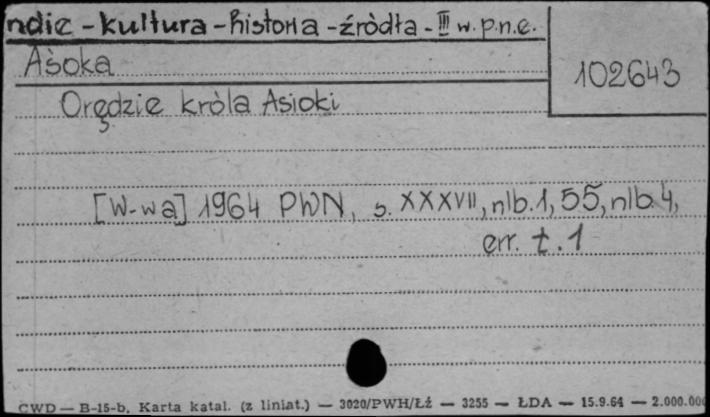 ndie - kultura - historia - źròdła - III w. p.n.e.
Aśoka
102643
Orędzie kròla Asioki
[W-wa] 1964 PWN, s. XXXVII, nlb. 1, 55, nlb 4,
err. t. 1
CWD — B-15-b, Karta katal. (z liniat.) — 3020/PWH/Łź — 3255 — ŁDA — 15.9.64 — 2.000.000